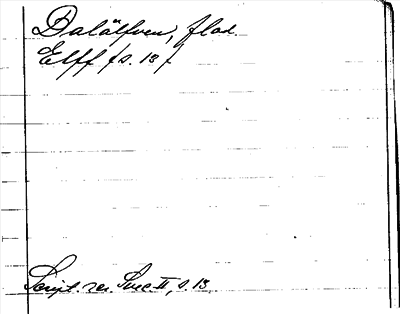 Dalälfven, flod.
Elff (s. 13)
Script. rer. Suec. II, s. 13.